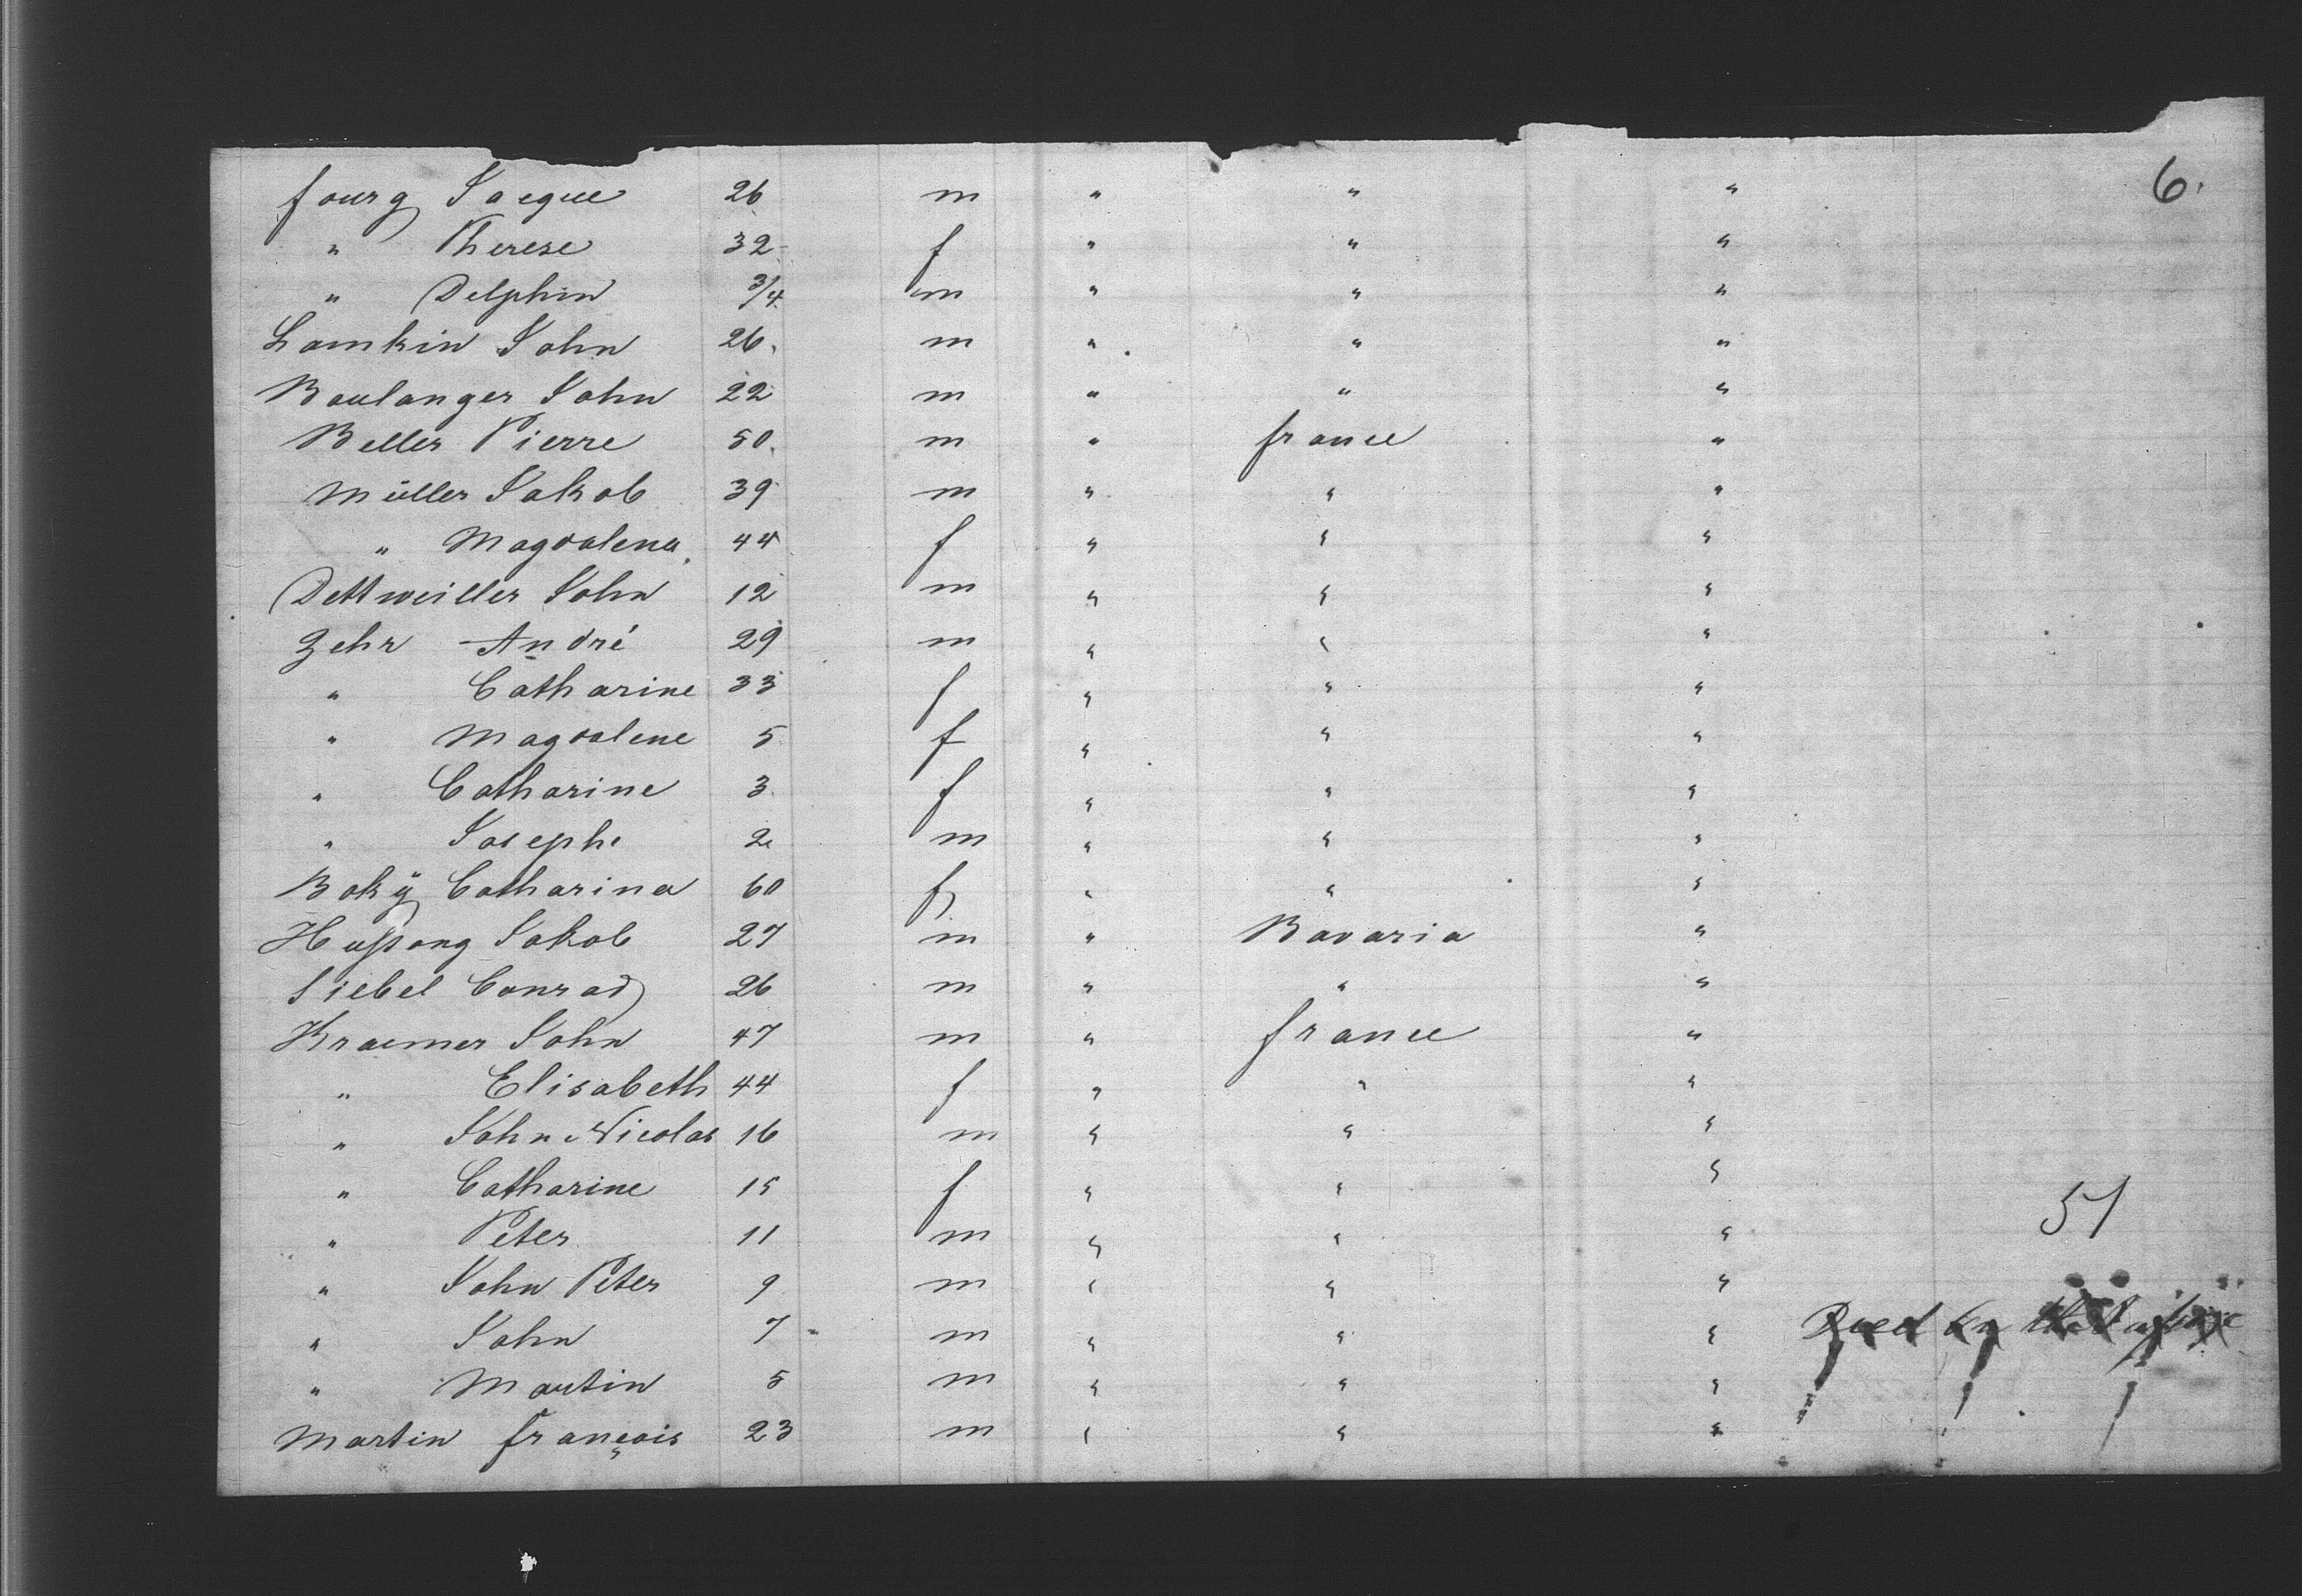 6.
fourg Jaque 26 m " " "
" Therese 32 f " " "
" Delphin 3/4 m " " "
Lamkin John 26. m " " "
Boulanger John 22 m " " "
Beller Pierre 50. m " france "
Müller Jakob 39 m " " "
" Magdalena 44 f " " "
Dettweiller John 12 m " " "
Zehr André 29 m " " "
" Catharine 33 f " " "
" Magdalene 5 f " " "
" Catharine 3 f " " "
" Joseph 2 m " " "
Boky Catharina 60 f " " "
Hußong Jakob 27 m " Bavaria "
Siebel Conrad 26 m " " "
Kraemer John 47 m " france "
" Elisabeth 44 f " " "
" John Nicolas 16 m " " "
" Catharine 15 f " " "
" Peter 11 m " " " 51
" John Peter 9 m " " "
" John 7 m " " " Died on the
" Martin 5 m " " "
Martin françois 23 m " " "